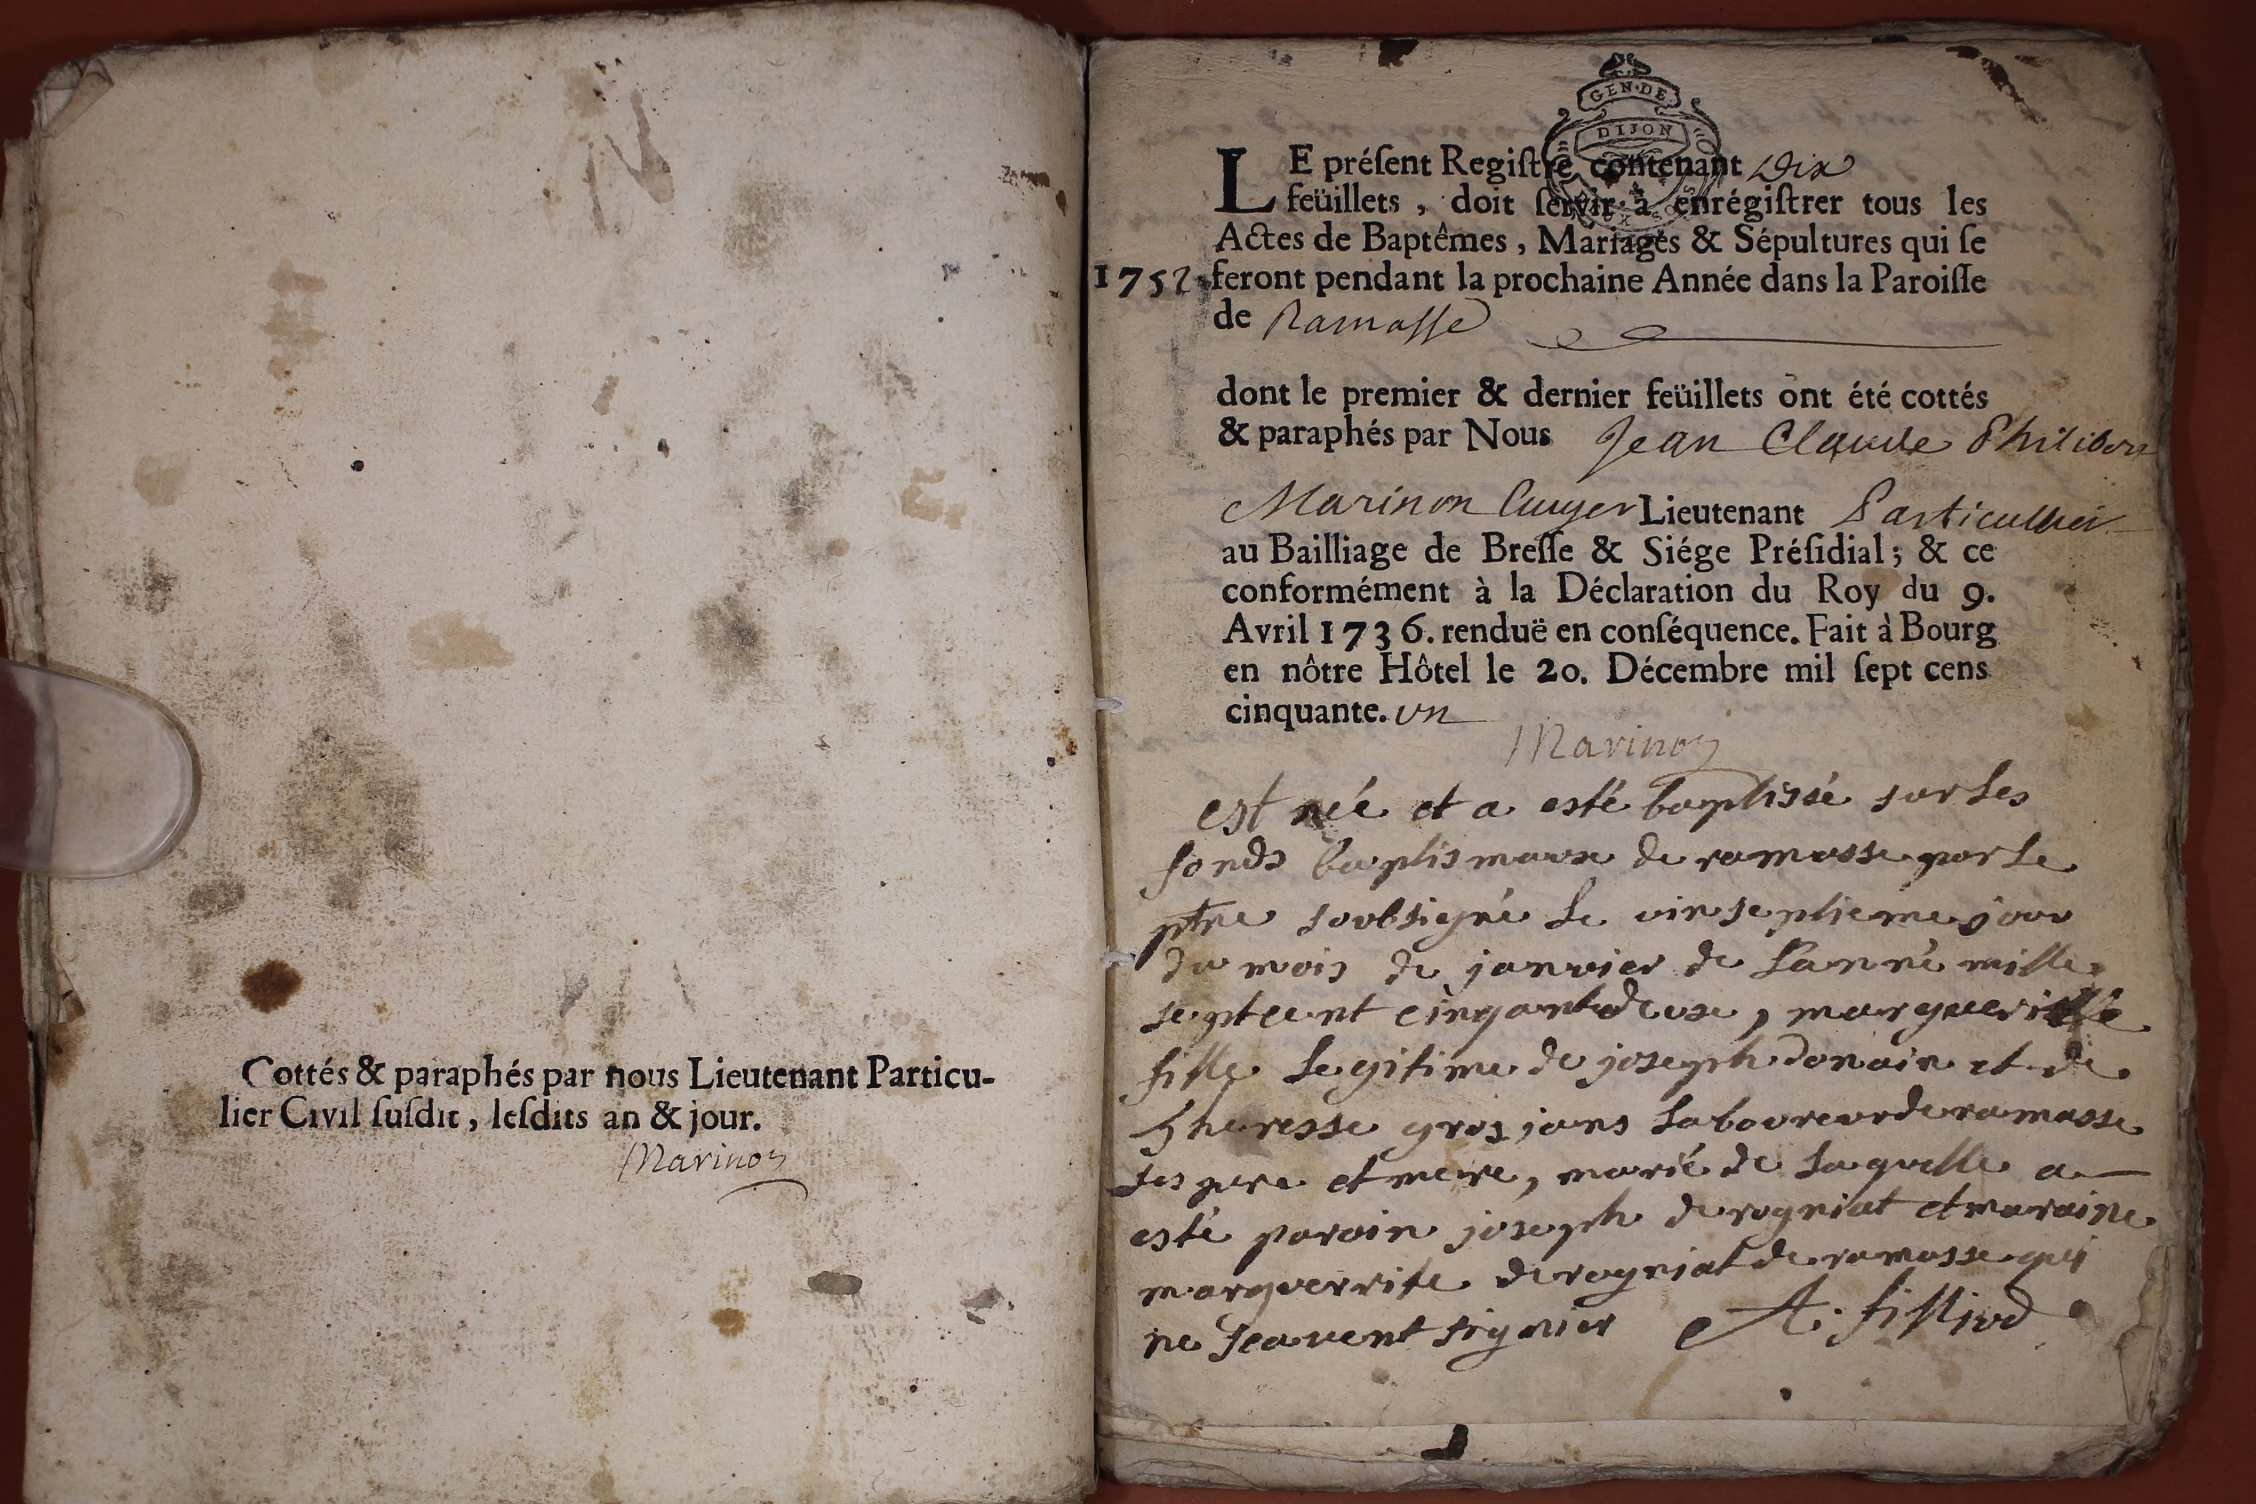 Cottés & paraphés par nous Lieutenant Particu-
lier Civil ſuſdit, leſdits an & jour.
Marinon
GEN·DE
DIJON
LE préſent Regiſtre contenant Dix
feüillets, doit ſervir à enrégiſtrer tous les
Actes de Baptêmes, Mariages & Sépultures qui ſe
1752 feront pendant la prochaine Année dans la Paroiſſe
de Ramasse
dont le premier & dernier feüillets ont été cottés
& paraphés par Nous Jean Claude Philibert
Marinon Lieutenant Particullier
au Bailliage de Breſſe & Siége Préſidial; & ce
conformément à la Déclaration du Roy du 9.
Avril 1736. renduë en conſéquence. Fait à Bourg
en nôtre Hôtel le 20. Décembre mil ſept cens
cinquante. un
Marinon
est née et a esté baptissé sur les
fonds baptismaux de ramasse par le
ptre soubsigné le vinseptieme jour
du mois de janvier de lanné mille
septcent cinqantedeux, margueritte
fille legitime de joseph donain et de
theresse grosjans laboureur de ramasse
ses pere et mere, marié de laquelle a
esté paroin joseph derogniat et maraine
marguerrite derogniat de ramasse qui
ne scavent signier A. filliod